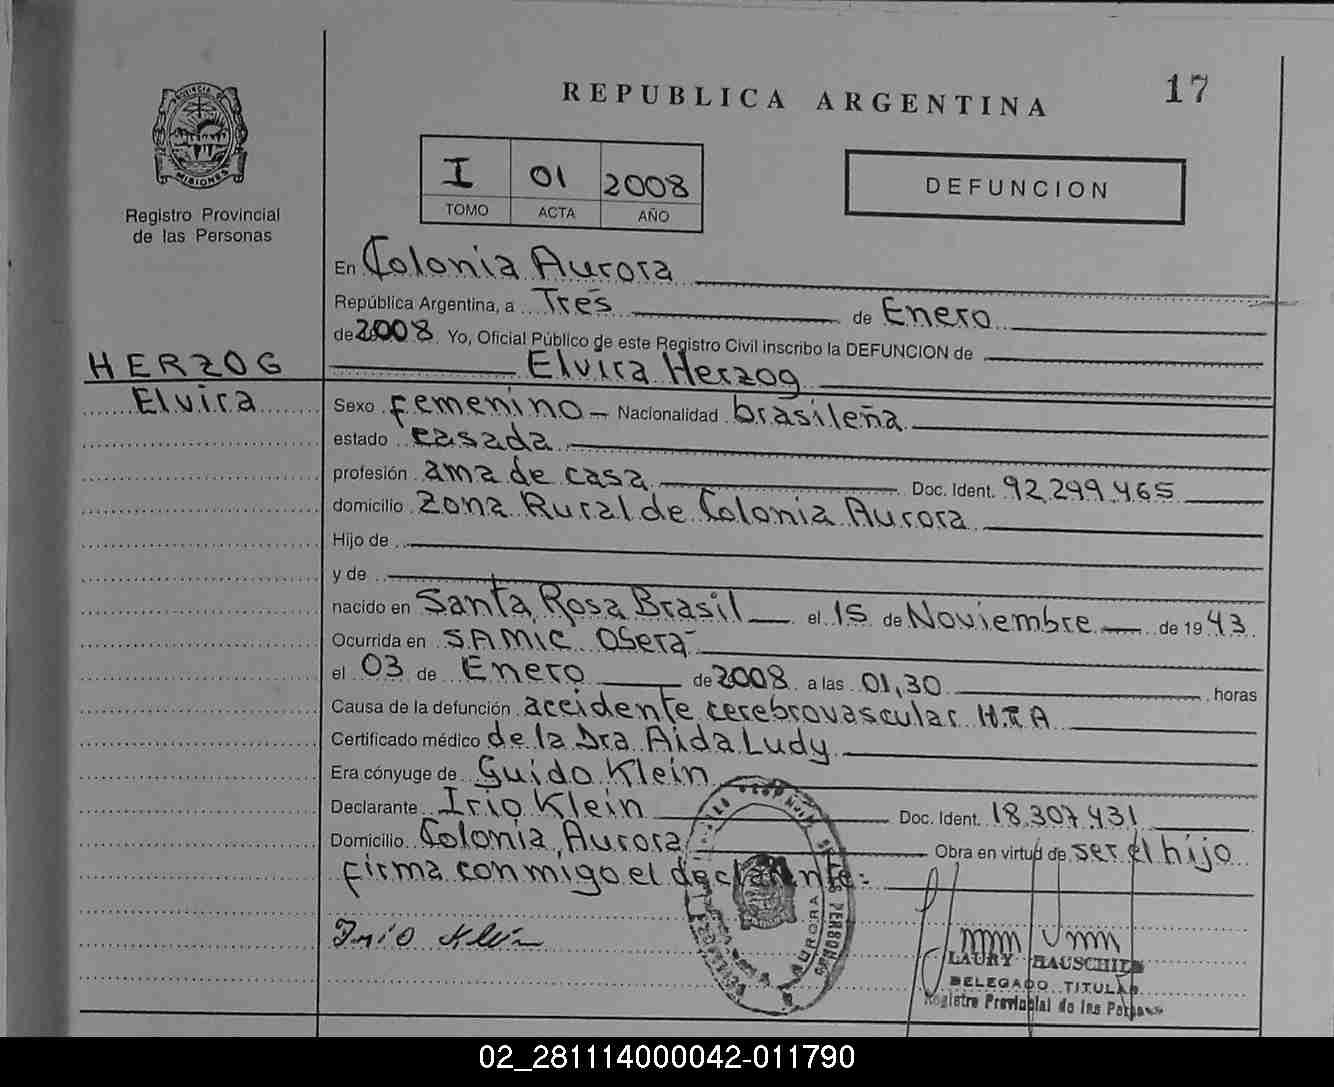 REPUBLICA ARGENTINA
17
MISIONES
Registro Provincial
de las Personas
I 01 2008
TOMO ACTA AÑO
DEFUNCION
En Colonia Aurora
República Argentina, a Tres de Enero
de 2008 Yo, Oficial Público de este Registro Civil inscribo la DEFUNCION de
HERZOG
Elvira
Elvira Herzog
Sexo femenino - Nacionalidad brasileña
estado casada
profesión ama de casa Doc. Ident. 92.299.465
domicilio Zona Rural de Colonia Aurora
Hijo de
y de
nacido en Santa Rosa Brasil el 15 de Noviembre de 1943
Ocurrida en SAMIC Oserá
el 03 de Enero de 2008 a las 01,30 horas
Causa de la defunción accidente cerebrovascular HTA
Certificado médico de la Dra Aida Ludy
Era cónyuge de Guido Klein
Declarante Irio Klein Doc. Ident. 18.307.431
Domicilio Colonia Aurora Obra en virtud de ser el hijo
firma conmigo el declarante:
Irio Klein
AURORA
PERSONAS
LAURY HAUSCHILD
DELEGADO TITULAR
Registro Provincial de las Personas
02_281114000042-011790